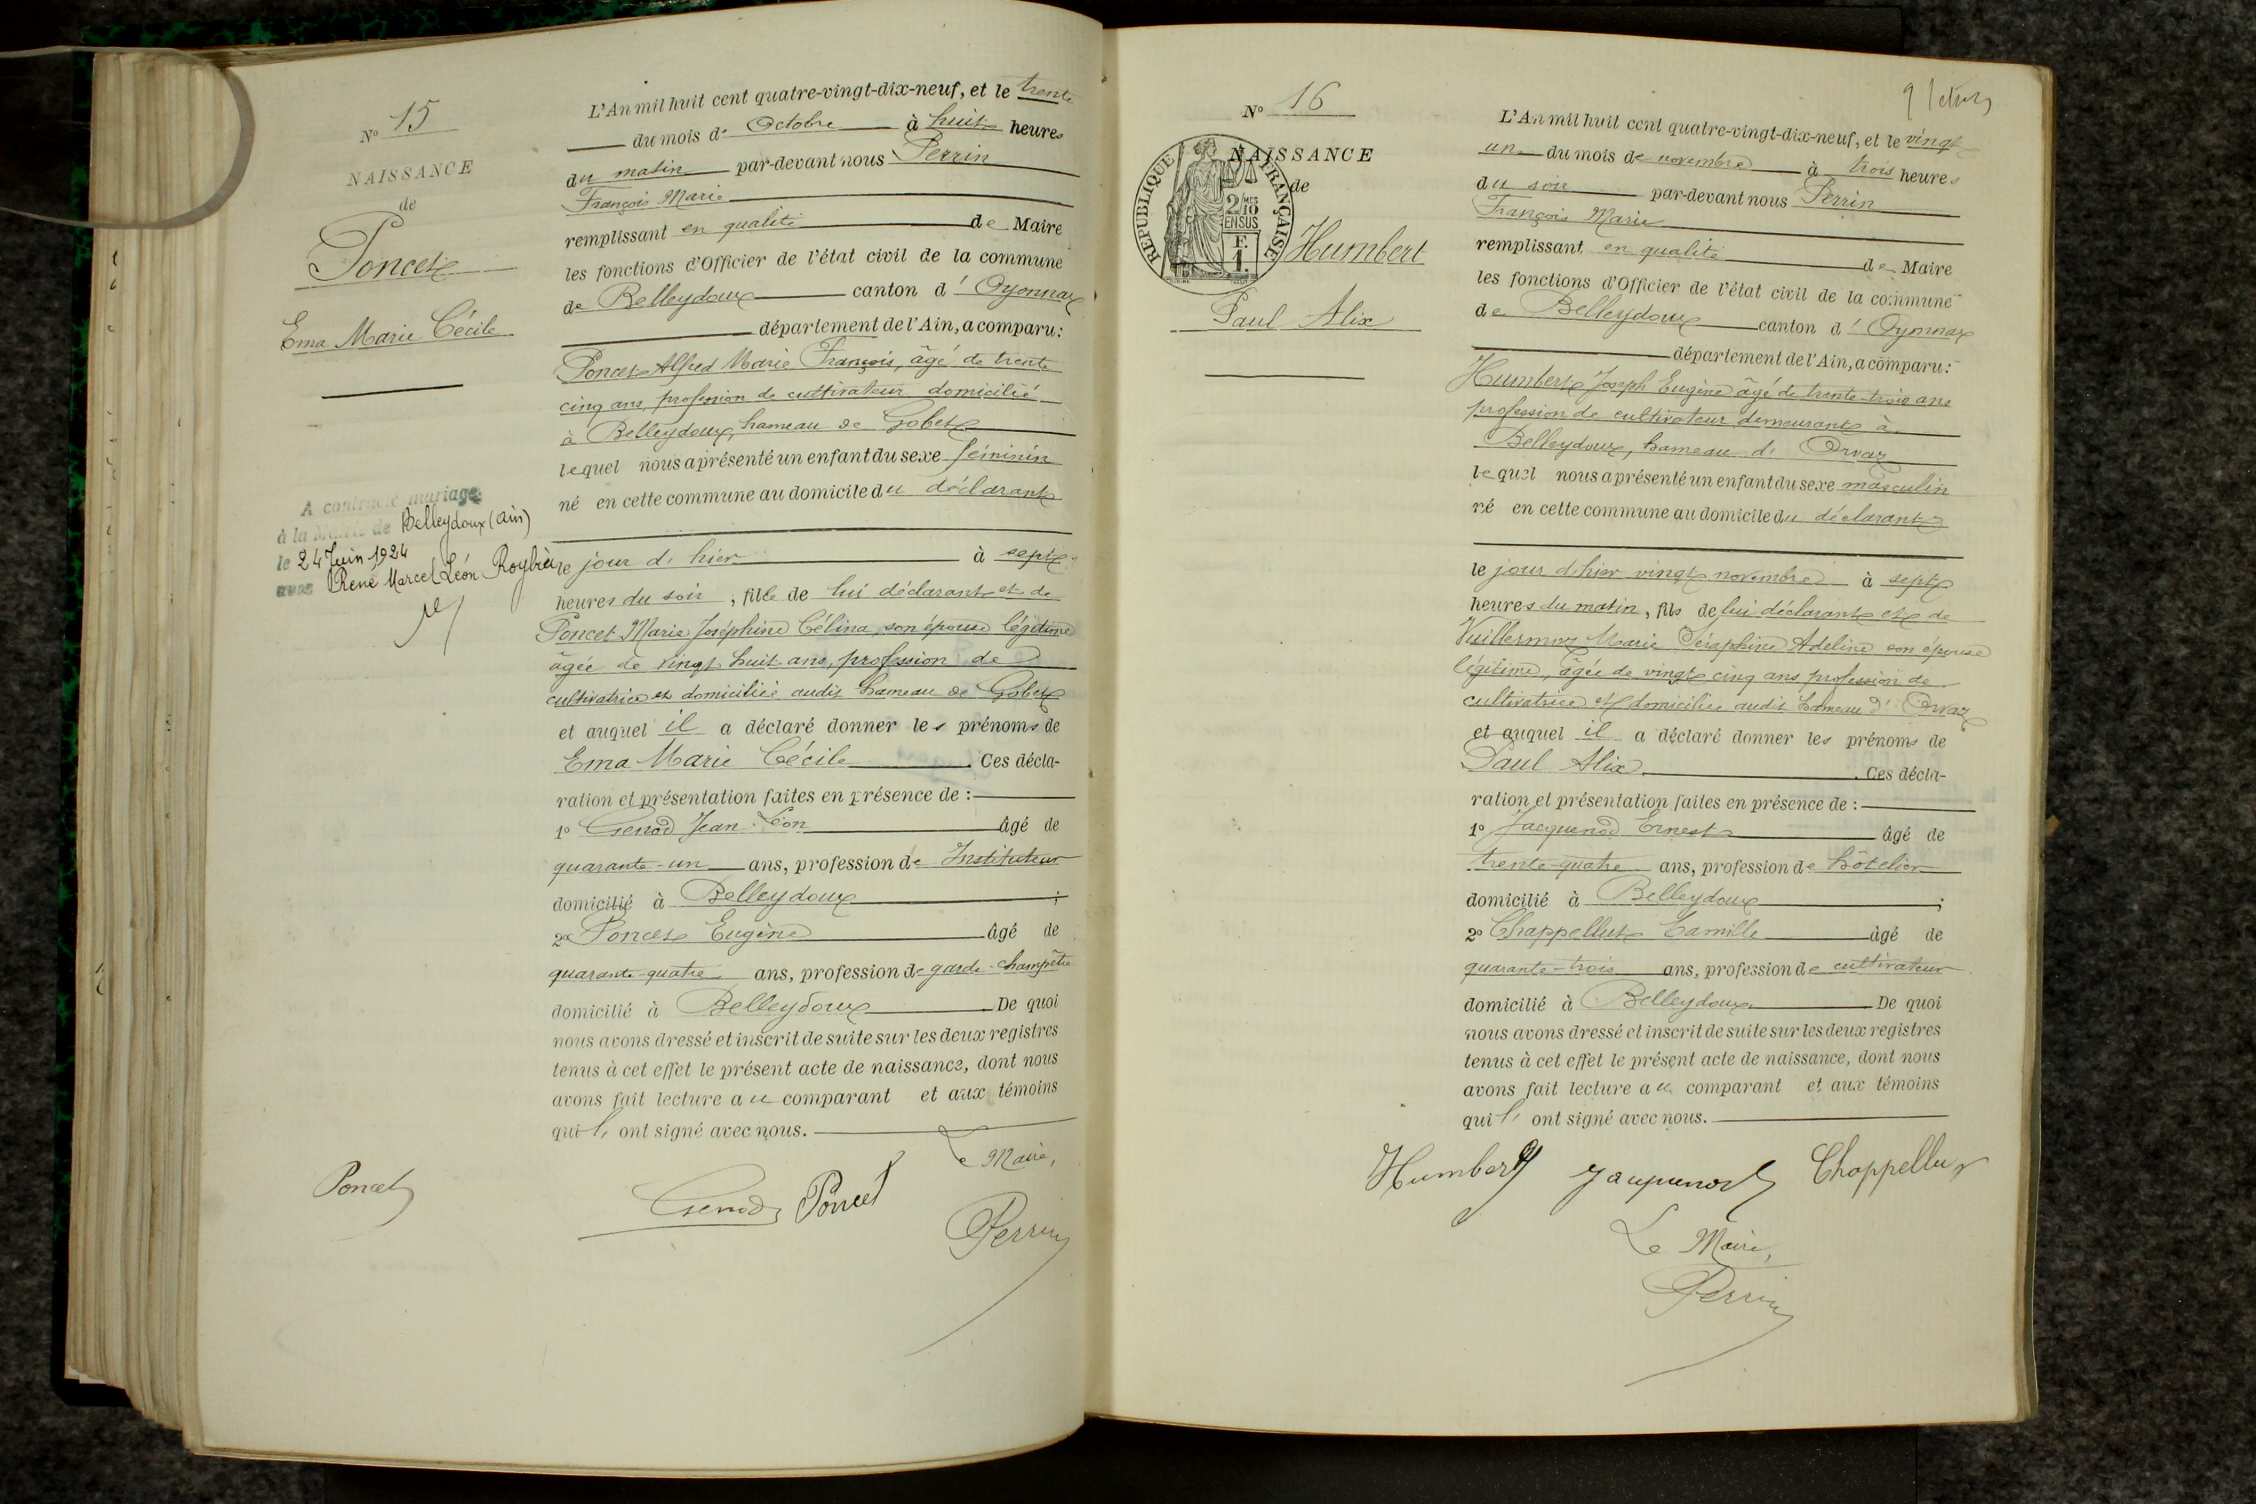 N° 15
NAISSANCE
de
Poncet
Ema Marie Cécile
A contracté mariage
à la Mairie de Belleydoux (Ain)
le 24 Juin 1924
avec René Marcel Léon
L'An mil huit cent quatre-vingt-dix-neuf, et le trente
du mois de Octobre à huit heures
du matin par-devant nous Perrin
François Marie
remplissant en qualité de Maire
les fonctions d'Officier de l'état civil de la commune
de Belleydoux canton d'Oyonnax
département de l'Ain, a comparu :
Poncet Alfred Marie François, âgé de trente
cinq ans, profession de cultivateur domicilié
à Belleydoux, hameau de Gobet
lequel nous a présenté un enfant du sexe féminin
né en cette commune au domicile du déclarant
le jour d'hier à sept
heures du soir, fille de lui déclarant et de
Poncet Marie Joséphine Célina, son épouse légitime
âgée de vingt huit ans, profession de
cultivatrice et domiciliée audit hameau de Gobet
et auquel il a déclaré donner les prénoms de
Ema Marie Cécile. Ces décla-
ration et présentation faites en présence de :
1° Genod Jean Léon âgé de
quarante-un ans, profession de Instituteur
domicilié à Belleydoux ;
2° Poncet Eugène âgé de
quarante-quatre ans, profession de garde-champêtre
domicilié à Belleydoux De quoi
nous avons dressé et inscrit de suite sur les deux registres
tenus à cet effet le présent acte de naissance, dont nous
avons fait lecture au comparant et aux témoins
qui l' ont signé avec nous.
Le Maire,
Poncet Genod Poncet
Perrin
N° 16
NAISSANCE
de
RÉPUBLIQUE FRANÇAISE
2 MES
10
EN SUS
F.
1.
Humbert
Paul Alix
L'An mil huit cent quatre-vingt-dix-neuf, et le vingt
un du mois de novembre à trois heures
du soir par-devant nous Perrin
François Marie
remplissant en qualité de Maire
les fonctions d'Officier de l'état civil de la commune
de Belleydoux canton d'Oyonnax
département de l'Ain, a comparu :
Humbert Joseph Eugène âgé de trente-trois ans
profession de cultivateur demeurant à
Belleydoux, hameau d'Orvaz
lequel nous a présenté un enfant du sexe masculin
né en cette commune au domicile du déclarant
le jour d'hier vingt novembre à sept
heures du matin, fils de lui déclarant et de
Vuillermoz Marie Séraphine Adeline son épouse
légitime, âgée de vingt cinq ans profession de
cultivatrice et domiciliée audit hameau d'Orvaz
et auquel il a déclaré donner les prénoms de
Paul Alix. Ces décla-
ration et présentation faites en présence de :
1° Jacquenod Ernest âgé de
trente-quatre ans, profession de hôtelier
domicilié à Belleydoux ;
2° Chappellut Camille âgé de
quarante-trois ans, profession de cultivateur
domicilié à Belleydoux De quoi
nous avons dressé et inscrit de suite sur les deux registres
tenus à cet effet le présent acte de naissance, dont nous
avons fait lecture au comparant et aux témoins
qui l' ont signé avec nous.
Humbert Jacquenod Chappellut
Le Maire,
Perrin